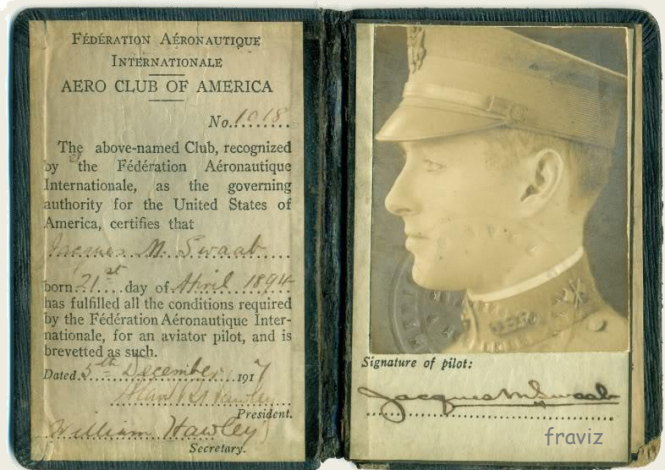 FÉDÉRATION AÉRONAUTIQUE
INTERNATIONALE
AERO CLUB OF AMERICA
No. 1018
The above-named Club, recognized
by the Fédération Aéronautique
Internationale, as the governing
authority for the United States of
America, certifies that
Jacques M. Swaab
born 21st day of April 1894
has fulfilled all the conditions required
by the Fédération Aéronautique Inter-
nationale, for an aviator pilot, and is
brevetted as such.
Dated 5th December 1917
President.
William Hawley
Secretary.
Signature of pilot:
Jacques M Swaab
fraviz